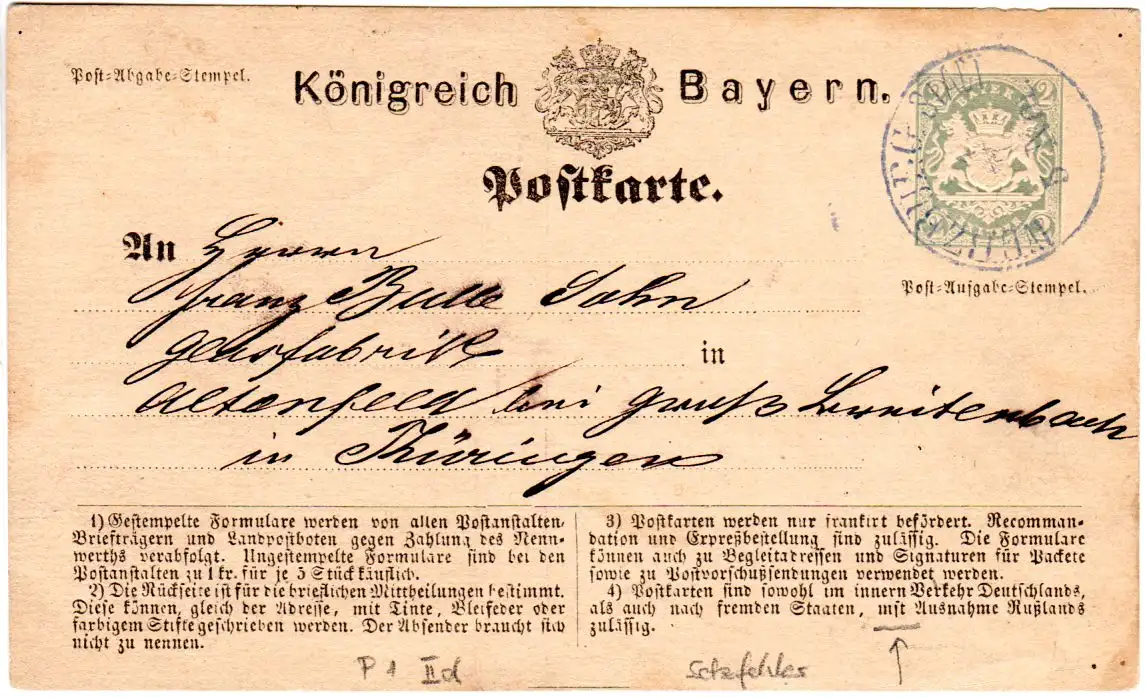 Post-Abgabe-Stempel.
Königreich Bayern.
Postkarte.
BAYERN
2
2
WÜRZBURG
Post-Aufgabe-Stempel.
An Herrn
Franz Bulle Sohn
Glasfabrik in
Altenfeld bei Groß Breitenbach
in Thüringen
1) Gestempelte Formulare werden von allen Postanstalten,
Briefträgern und Landpostboten gegen Zahlung des Nenn-
werths verabfolgt. Ungestempelte Formulare sind bei den
Postanstalten zu 1 kr. für je 5 Stück käuflich.
2) Die Rückseite ist für die brieflichen Mittheilungen bestimmt.
Diese können, gleich der Adresse, mit Tinte, Bleifeder oder
farbigem Stifte geschrieben werden. Der Absender braucht sich
nicht zu nennen.
3) Postkarten werden nur frankirt befördert. Recomman-
dation und Expreßbestellung sind zulässig. Die Formulare
können auch zu Begleitadressen und Signaturen für Packete
sowie zu Postvorschußsendungen verwendet werden.
4) Postkarten sind sowohl im innern Verkehr Deutschlands,
als auch nach fremden Staaten, mst Ausnahme Rußlands
zulässig.
P 1 II d Setzfehler